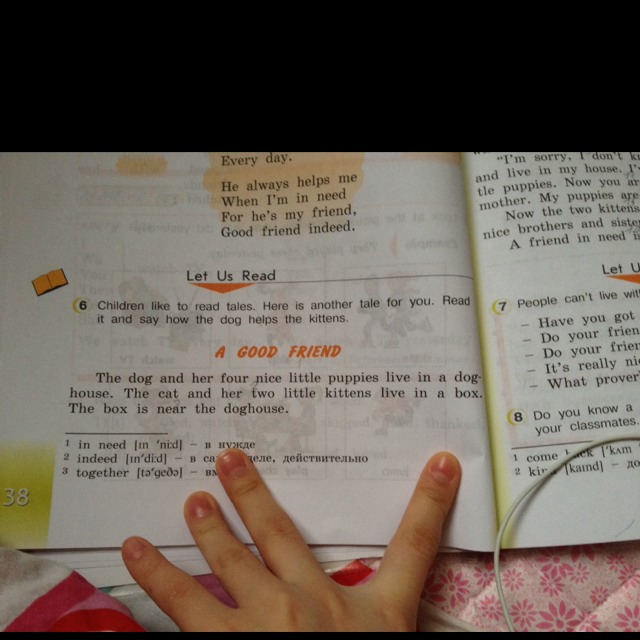 Every day.
He always helps me
When I'm in need
For he's my friend,
Good friend indeed.
Let Us Read
6 Children like to read tales. Here is another tale for you. Read
it and say how the dog helps the kittens.
A GOOD FRIEND
The dog and her four nice little puppies live in a dog-
house. The cat and her two little kittens live in a box.
The box is near the doghouse.
1 in need [ɪn 'ni:d] – в нужде
2 indeed [ɪn'di:d] – в деле, действительно
3 together [tə'geðə]
38
"I'm sorry, I don't
and live in my house.
tle puppies. Now you
mother. My puppies are
Now the two kittens
nice brothers and
A friend in need
Let
7 People can't live
– Have you got
– Do your
– Do your
– It's really
– What
8 Do you know a
your classmates.
1 come
2 [kaɪnd] –